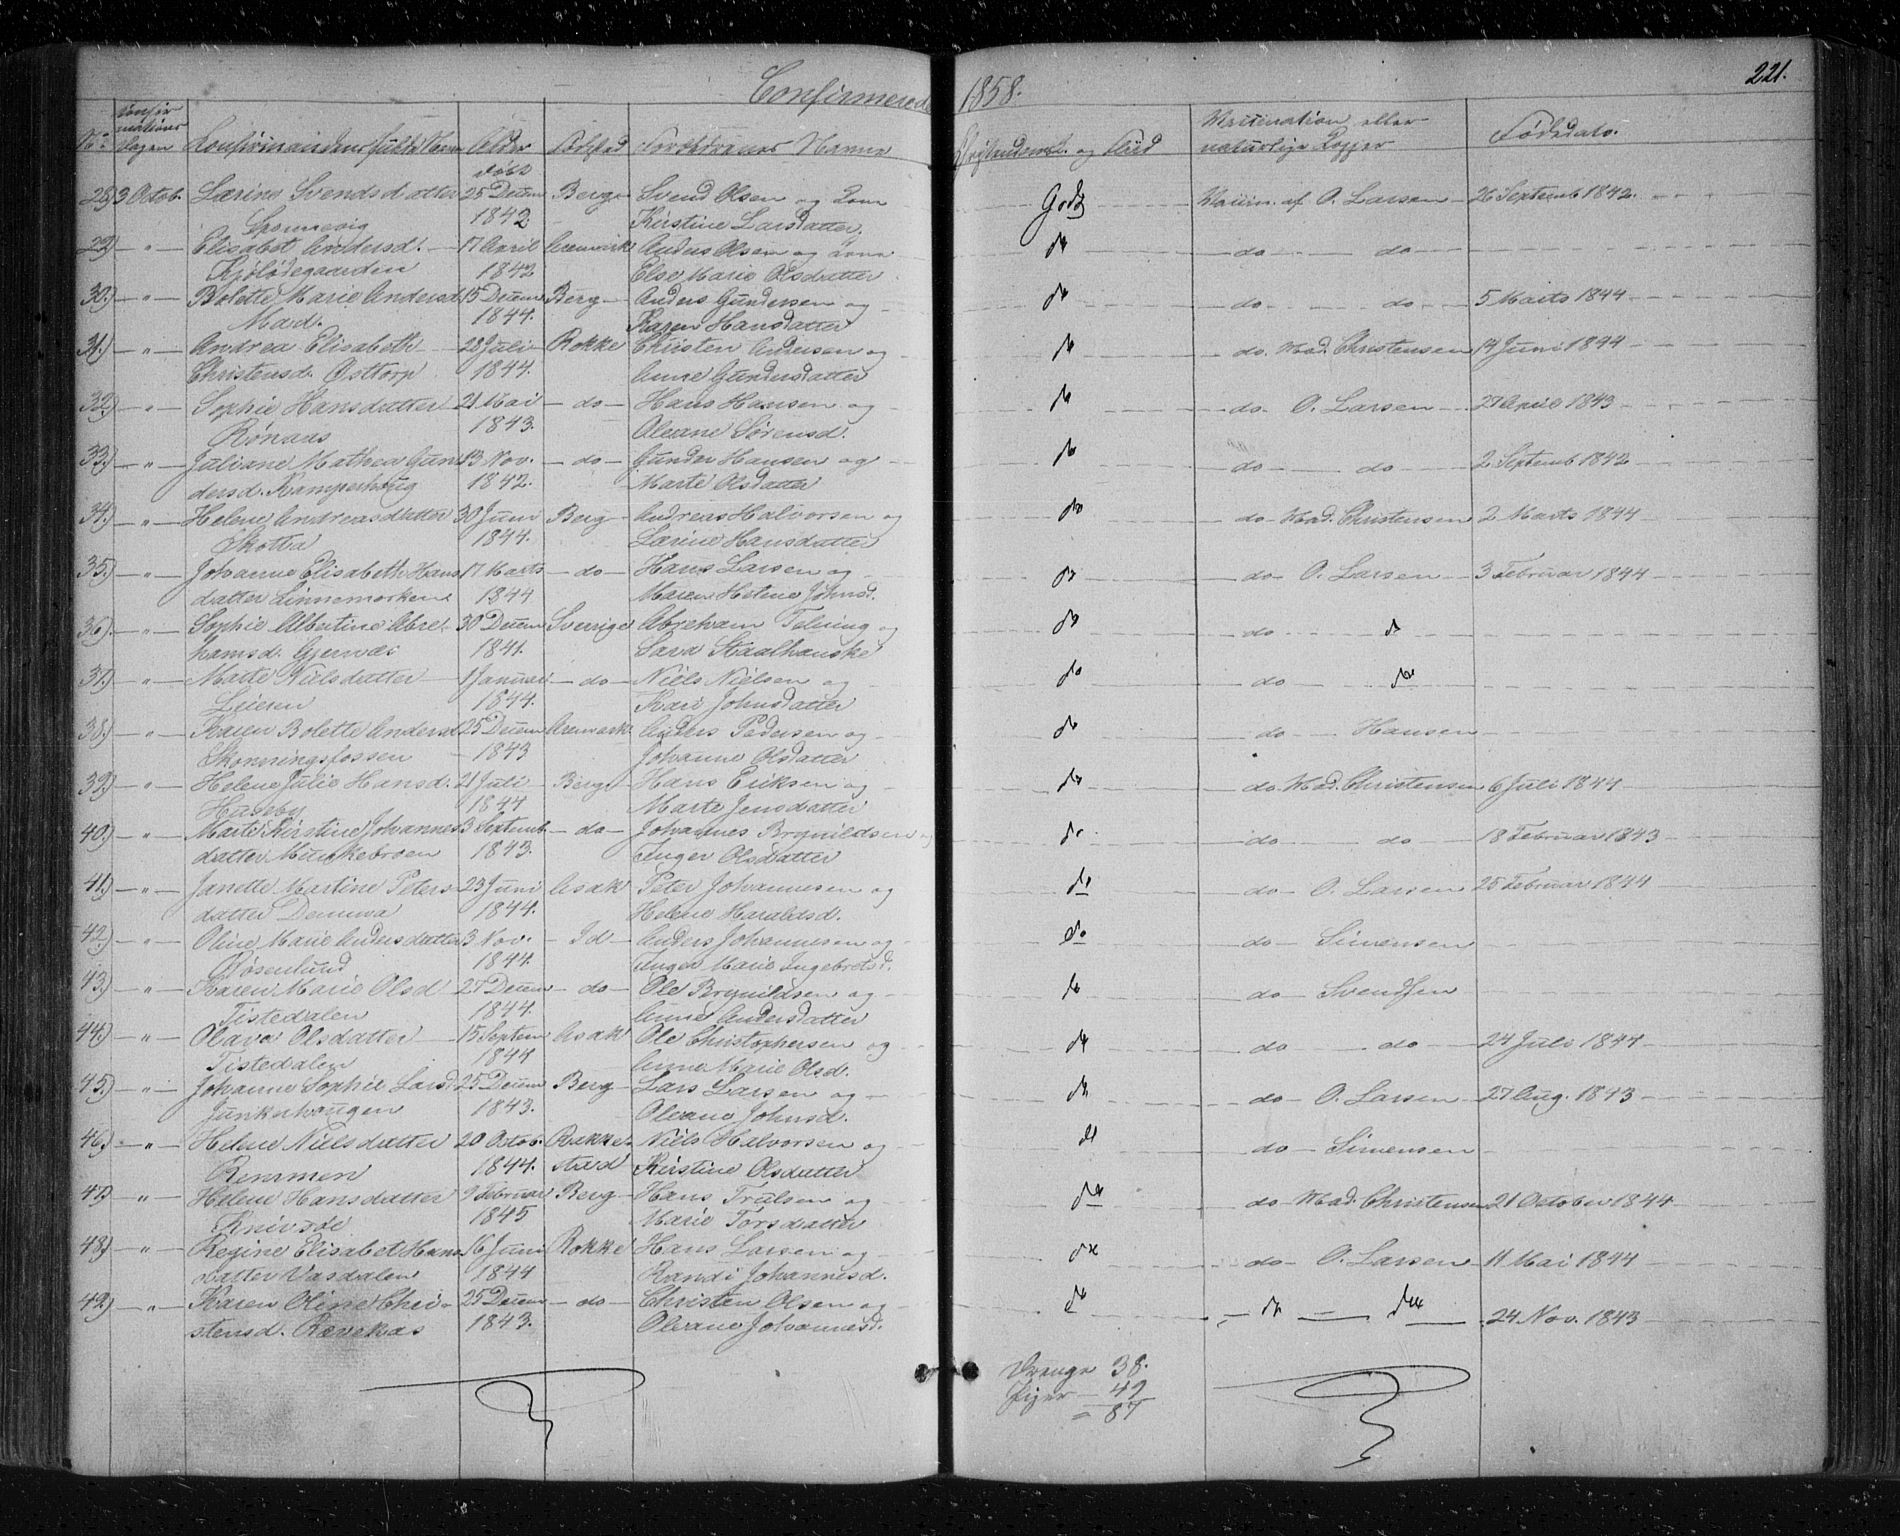 Confirmerede 1858. 221.
No Confirmations Dagen Confirmandens fulde Navn Alder Födested Forældrenes Navne og Flid Vaccination eller naturlige Kopper
födt
28) 3 Octob. Larine Svendsdatter 25 Decem Berg Svend Olsen og Kone Godt Vaccin. af O. Larsen 26 Septemb 1842.
Sponnevig 1842 Kirstine Larsdatter.
29) " Elisabet Andersd. 17 April Aremark Anders Olsen og Kone do do do
1842 Else Marie Olsdatter
30) " Bolette Marie Andersd 15 Decem Berg Anders Gundersen og do do do 5 Marts 1844
Mad. 1844. Karen Hansdatter
31) " Andrea Elisabeth 28 Juli Rokke Christen Andersen og do do Mad. Christensen 14 Juni 1844
Christensd. Osttorp 1844. Anne Gundersdatter
32) " Sophie Hansdatter 21 Mai do Hans Hansen og do do O. Larsen 27 April 1843
Rönaas 1843. Oleane Sørensd.
33) " Juliane Mathea Gun 13 Nov. do Gunder Hansen og do do do 2 Septemb 1842
dersd. Kamperhoug 1842. Marte Olsdatter
34) " Helene Andreasdatter 30 Juni Berg Andreas Halvorsen og do do Mad. Christensen 2 Marts 1844
Skotta 1844. Larine Hansdatter
35) " Johanne Elisabeth Hans 17 Marts do Hans Larsen og do do O. Larsen 3 Februar 1844
datter Linnemarken 1844 Maren Helene Johnsd.
36) " Sophie Albertine Abre 30 Decem Sverrige Abreham og do do do
hamsd. Gjernæs 1841. Sara Staalhanske
37) " Marte Nielsdatter 1 Januar do Niels Nielsen og do do do
Lieren 1844. Kari Johnsdatter
38) " Karen Bolette Andersd 25 Decem Aremark Anders Pedersen og do do Hansen
Skonningsfossen 1843 Johanne Olsdatter
39) " Helene Julie Hansd. 21 Juli Berg Hans Eriksen og do do Mad. Christensen 6 Juli 1844
Huseby 1844 Marte Jensdatter
40) " Marte Kirstine Johannes 3 Septemb do Johannes Brynildsen og do do do 18 Februar 1843
datter Munkebroen 1843. Inger Olsdatter
41) " Janette Martine Peters 23 Juni Asak Peter Johannesen og do do O. Larsen 25 Februar 1844
datter Demma 1844. Helene Haraldsd.
42) " Oline Marie Andersdatter 3 Nov. Id Anders Johannesen og do do Simensen
Rösenlund 1844. Inger Marie Ingebretsd.
43) " Karen Marie Olsd 27 Decem do Ole Brynildsen og do do Svendsen
Tistedalen 1844. Anne Andersdatter
44) " Olava Olsdatter 15 Septem Asak Ole Christophersen og do do do 24 Juli 1844
Tistedalen 1844 Anne Marie Olsd.
45) " Johanne Sophie Larsd 25 Decem Berg Lars Larsen og do do O. Larsen 27 Aug. 1843
Junkerhaugen 1843. Oleane Johnsd.
46) " Helene Nielsdatter 20 Octob. Rakke Niels Halvorsen og do do Simensen
Remmen 1844. stad Kirstine Olsdatter
47) " Helene Hansdatter 9 Februar Berg Hans Trulsen og do do Mad. Christensen 21 October 1844
Knivsöe 1845 Marie Torsdatter
48) " Regine Elisabet Hans 16 Juni Rokke Hans Larsen og do do O. Larsen 11 Mai 1844
datter Vasdalen 1844 Randi Johannesd.
49) " Karen Oline Chri 25 Decem do Christen Olsen og do do do 24 Nov. 1843
stensd. Rævekas 1843. Oleane Johannesd.
Drenge 38.
Piger 49
= 87